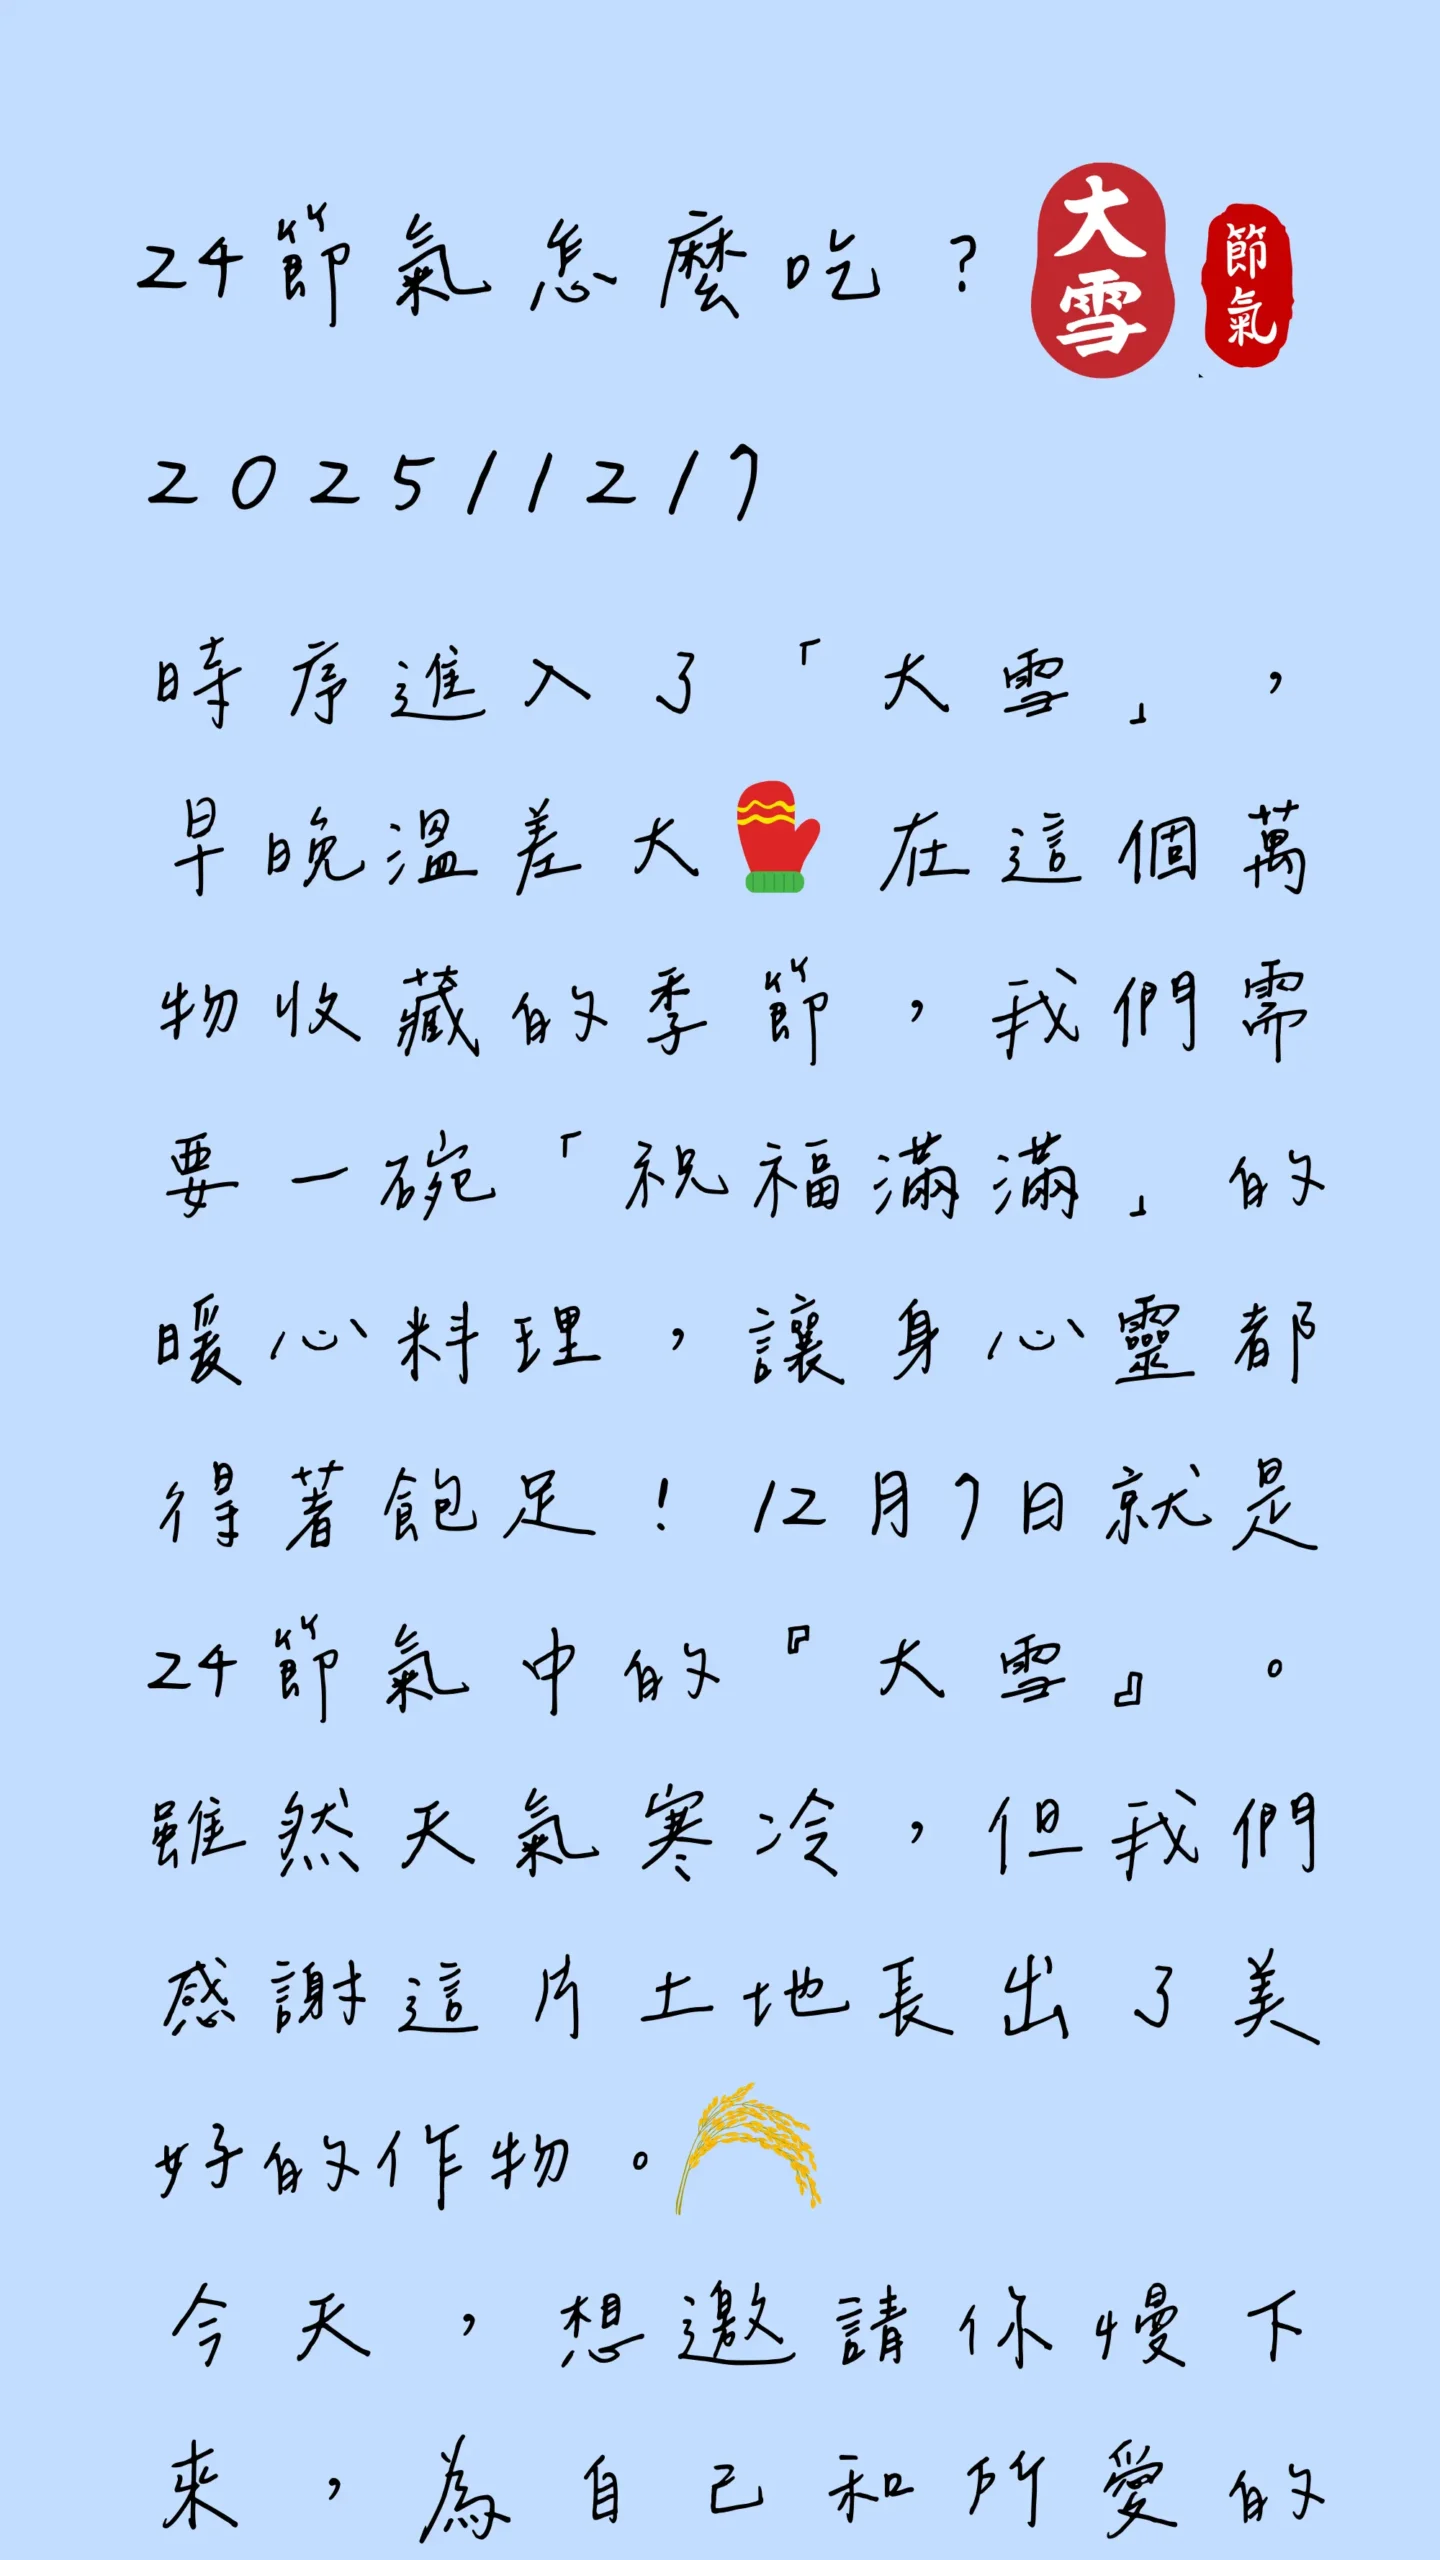 24節氣怎麼吃？大雪 節氣
2025/12/7
時序進入了「大雪」，
早晚溫差大 在這個萬
物收藏的季節，我們需
要一碗「祝福滿滿」的
暖心料理，讓身心靈都
得著飽足！12月7日就是
24節氣中的『大雪』。
雖然天氣寒冷，但我們
感謝這片土地長出了美
好的作物。
今天，想邀請你慢下
來，為自己和所愛的